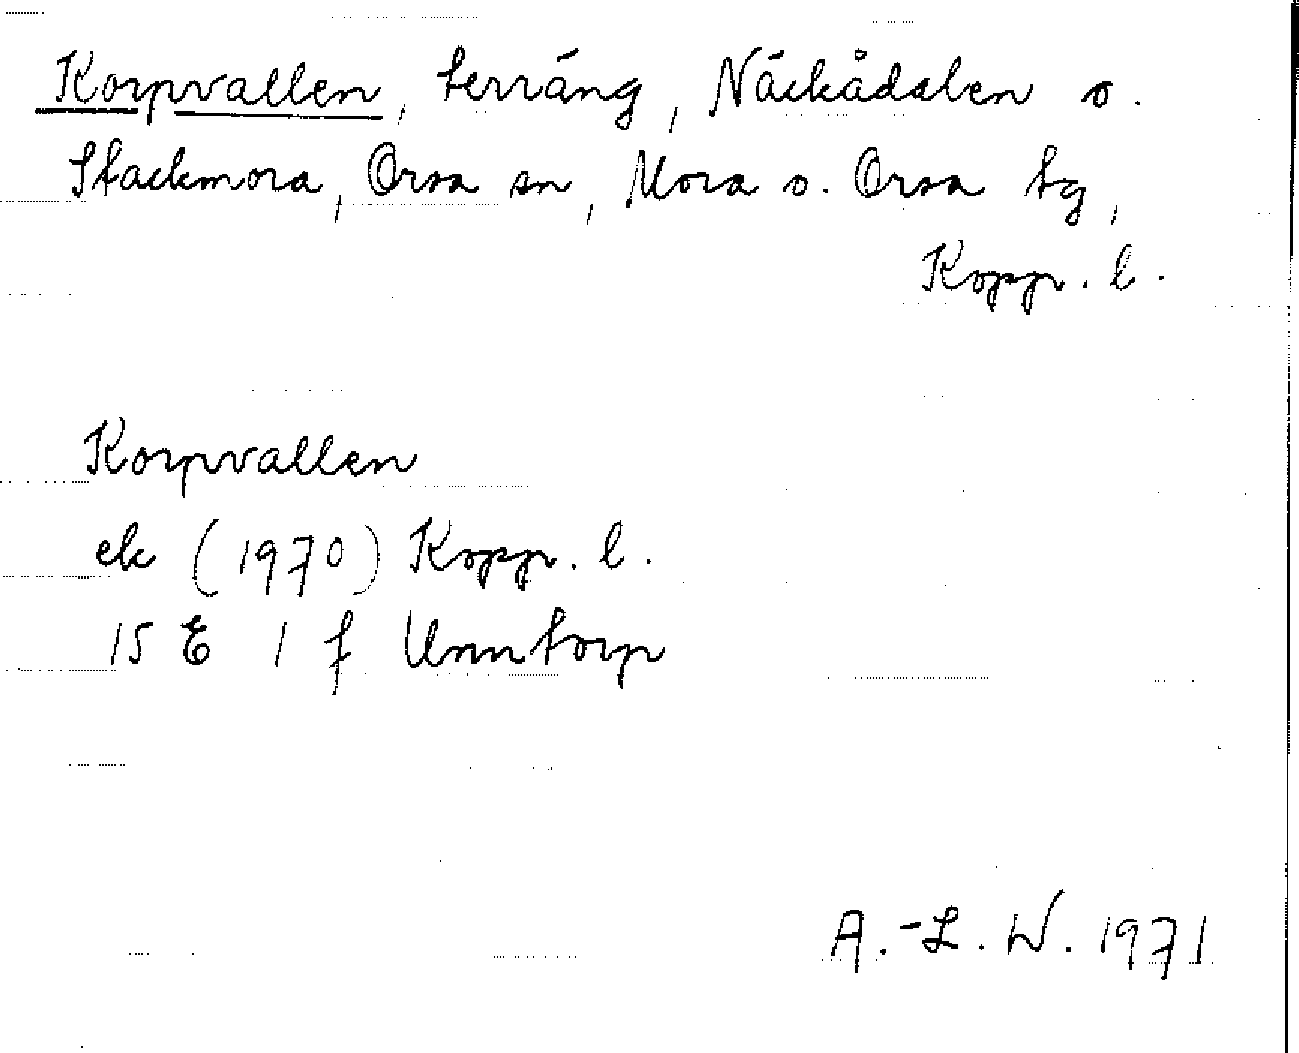 Korpvallen, terräng, Näckådalen o.
Stackmora, Orsa sn, Mora o. Orsa tg,
Kopp. l.
Korpvallen
ek (1970) Kopp. l.
15 E 1 f Unntorp
A.-L. W. 1971